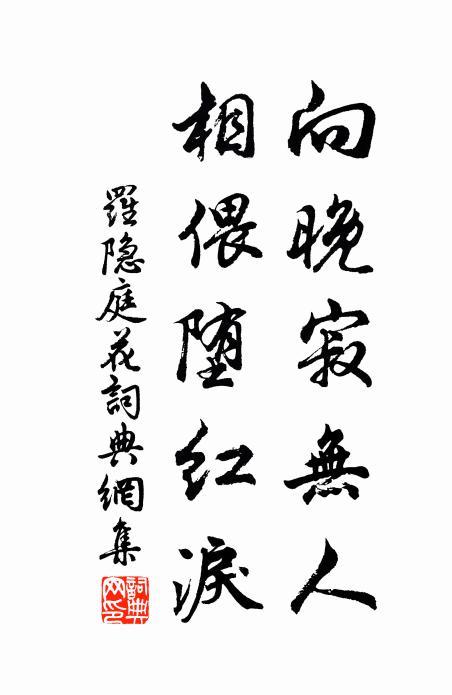 向晚寂無人
相偎堕紅淚
羅隐庭花詞典網集
詞典網印